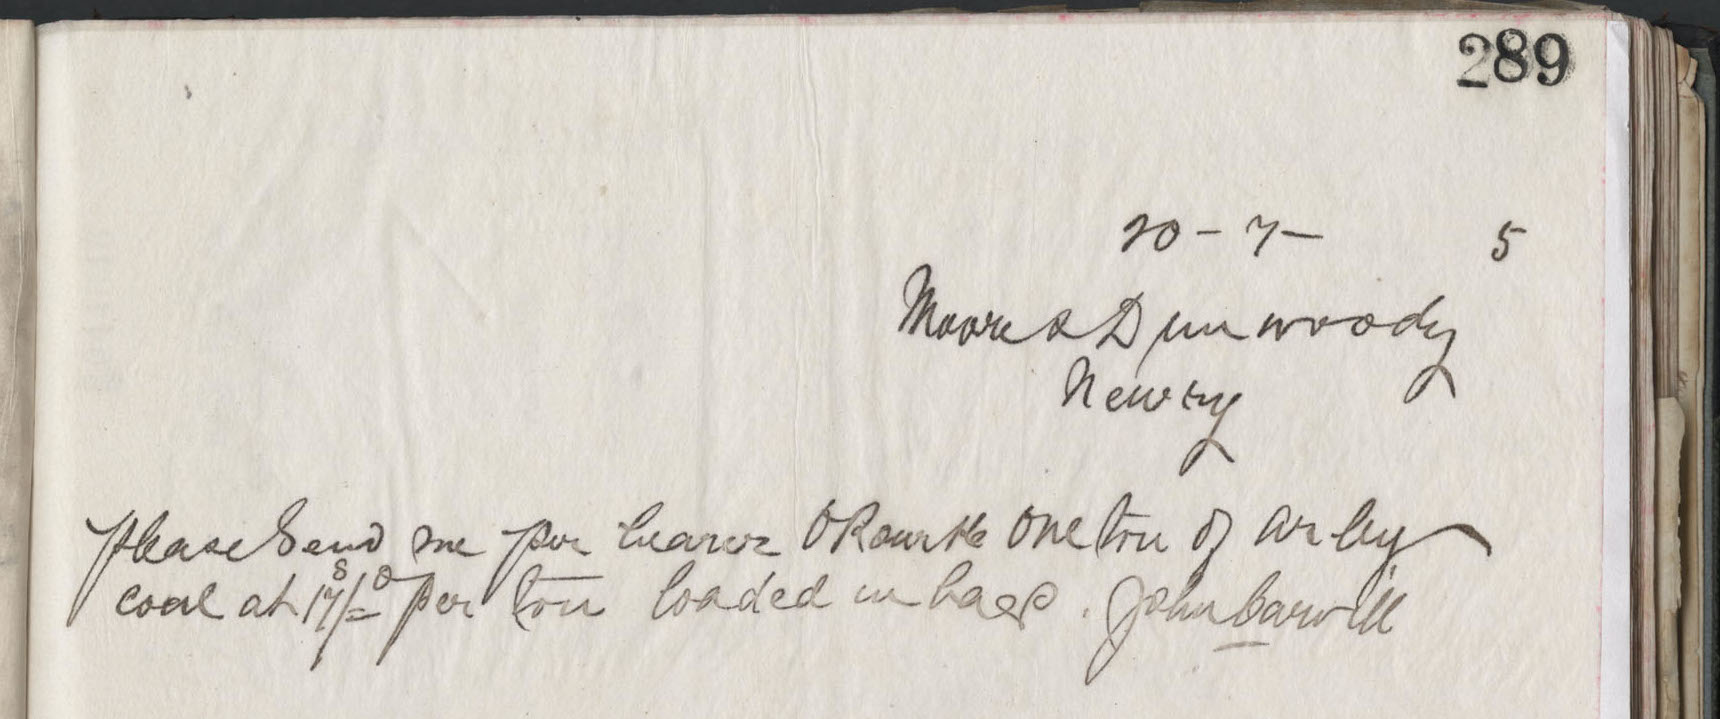 289
20 - 7 - 5
Moore & Dunwoody
Newry
Please Send me per bearer O Rourke One ton of arley
coal at 17s/=d per ton loaded in bags. John Carvill